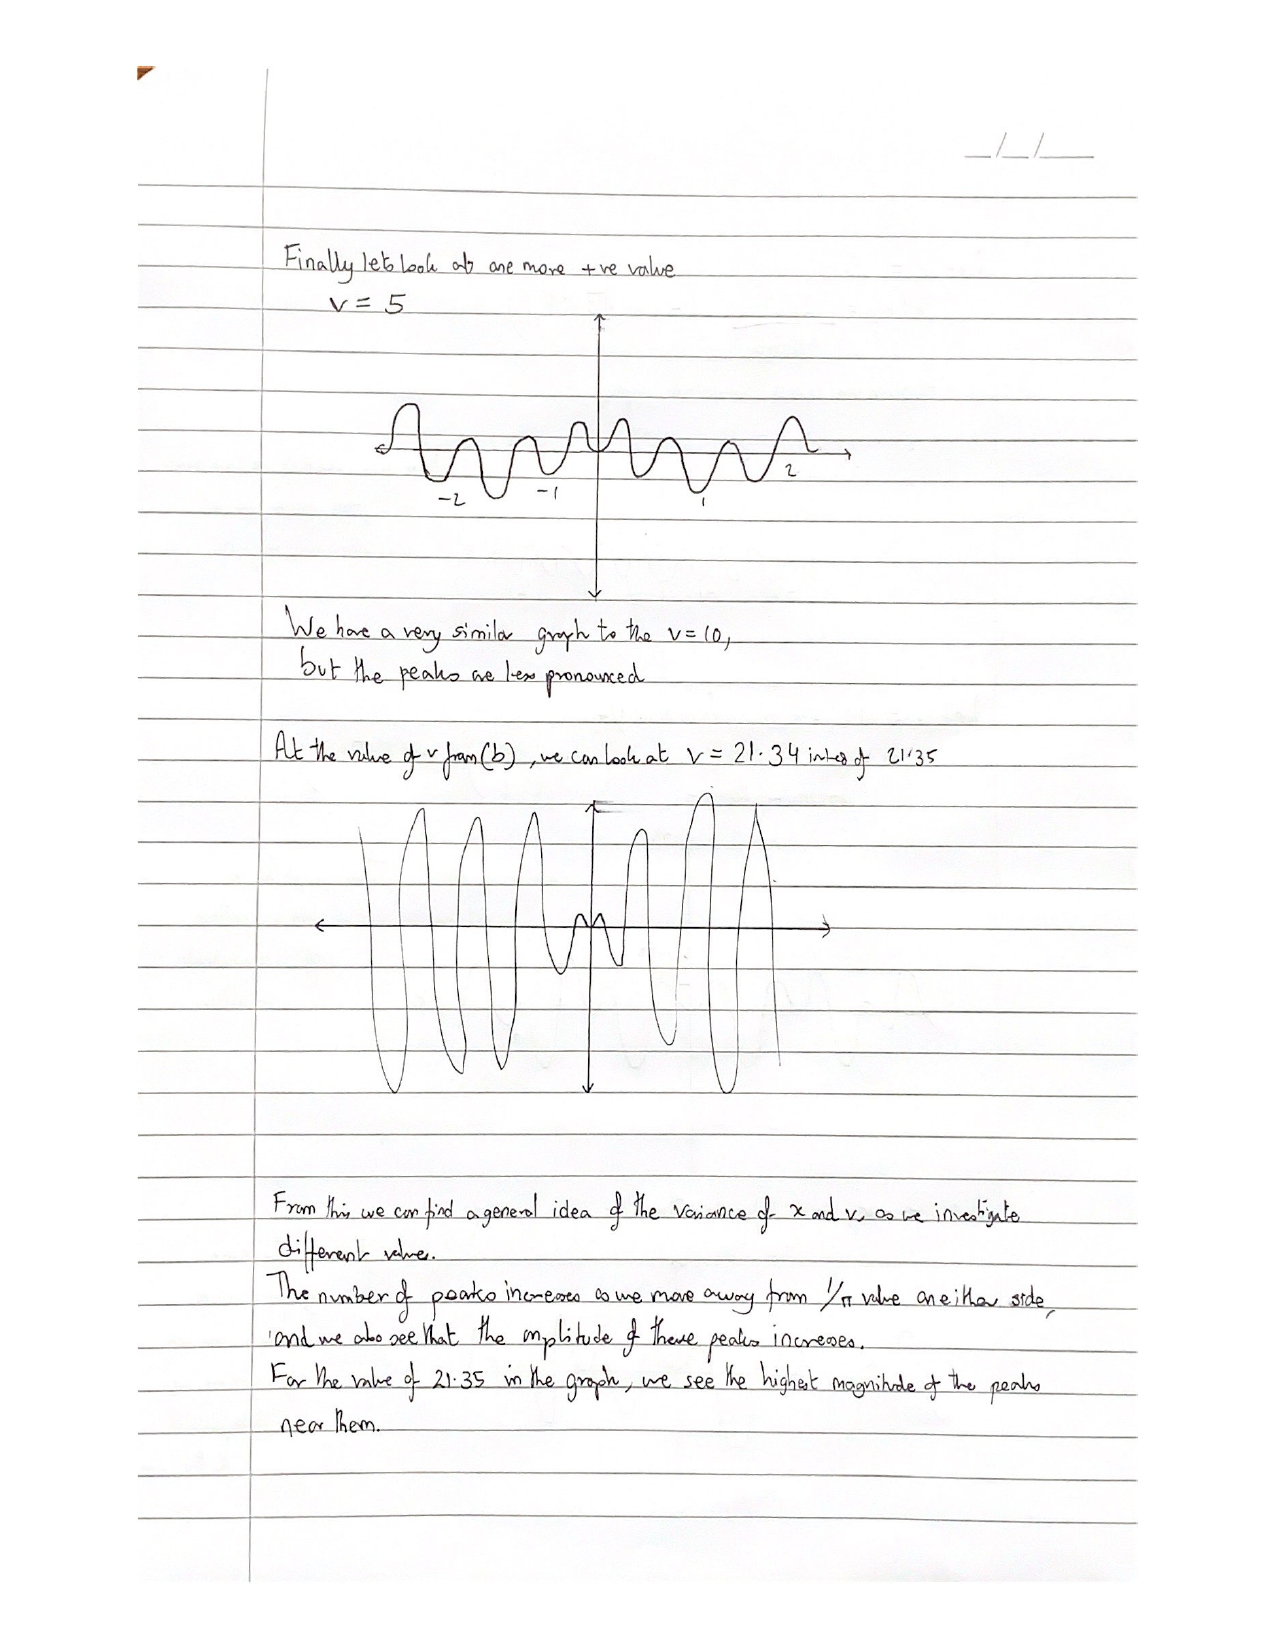 _/_/__
Finally lets look at one more +ve value
v = 5
-2 -1 1 2
We have a very similar graph to the v=10,
but the peaks are less pronounced
At the value of v from (b), we can look at v = 21.34 of 21.35
From this we can find a general idea of the variance of x and v, as we investigate
different values.
The number of peaks increases as we move away from 1/π value on either side,
and we also see that the amplitude of these peaks increases.
For the value of 21.35 in the graph, we see the highest magnitude of the peaks
near them.